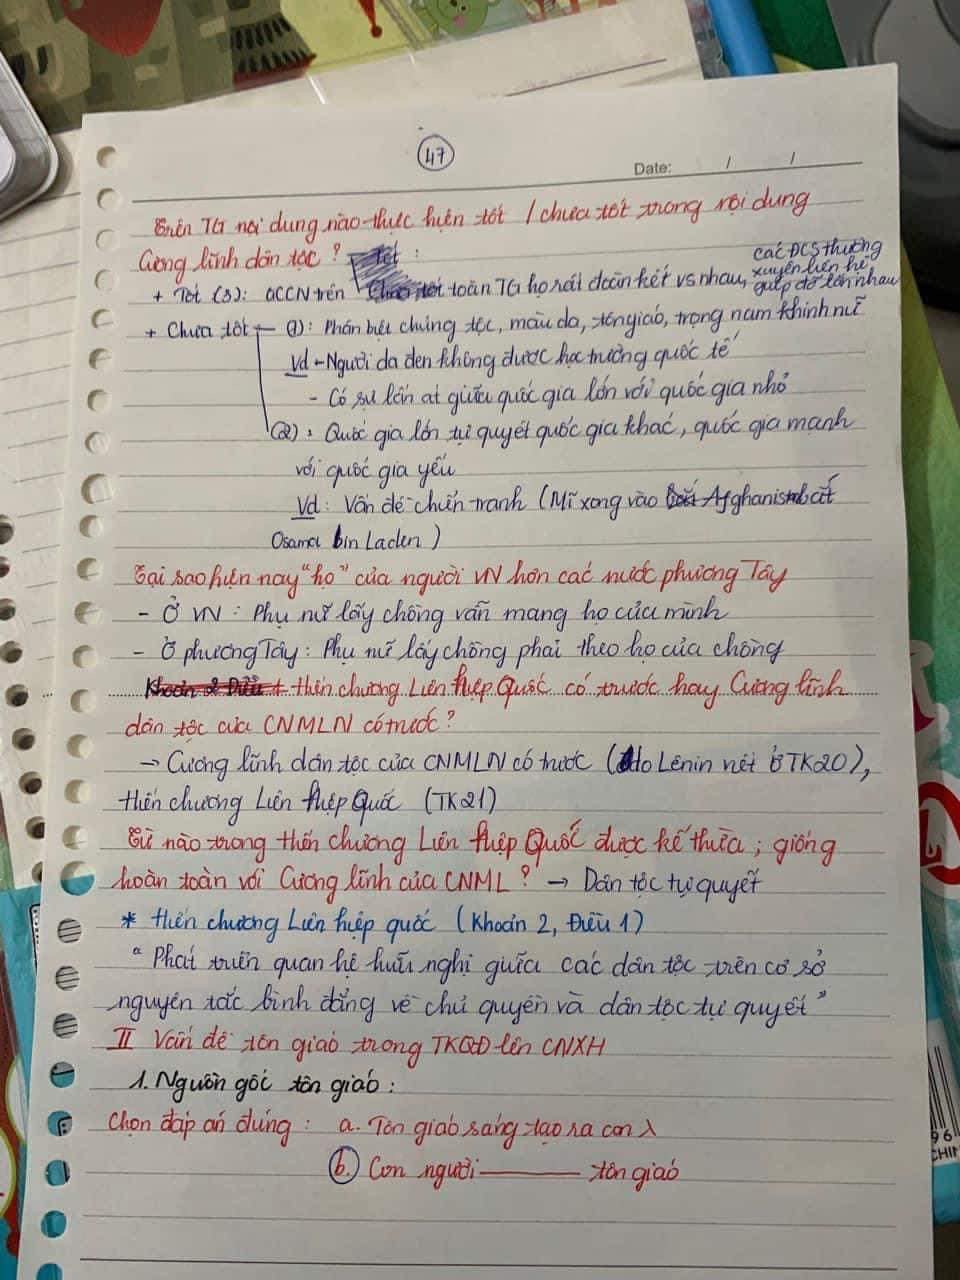 47
Date: / /
Trên TG nội dung nào thực hiện tốt / chưa tốt trong nội dung
Cương lĩnh dân tộc? Tốt :
các ĐCS thường
xuyên liên hệ
giúp đỡ lẫn nhau
+ Tốt (3): GCCN trên toàn TG họ rất đoàn kết vs nhau,
+ Chưa tốt (1): Phân biệt chủng tộc, màu da, tôn giáo, trọng nam khinh nữ
Vd - Người da đen không được học trường quốc tế
- Có sự lấn át giữa quốc gia lớn với quốc gia nhỏ
(2): Quốc gia lớn tự quyết quốc gia khác, quốc gia mạnh
với quốc gia yếu
Vd: Vấn đề chiến tranh (Mĩ xong vào Afghanistan bắt
Osama bin Laden)
Tại sao hiện nay "họ" của người VN hơn các nước phương Tây
- Ở VN: Phụ nữ lấy chồng vẫn mang họ của mình
- Ở phương Tây: Phụ nữ lấy chồng phải theo họ của chồng
Khoản 2 Điều 1 Hiến chương Liên hiệp Quốc có trước hay Cương lĩnh
dân tộc của CNMLN có trước?
→ Cương lĩnh dân tộc của CNMLN có trước (do Lênin viết ở TK20),
Hiến chương Liên hiệp Quốc (TK21)
Từ nào trong Hiến chương Liên hiệp Quốc được kế thừa; giống
hoàn toàn với Cương lĩnh của CNML? → Dân tộc tự quyết
* Hiến chương Liên hiệp quốc (Khoản 2, Điều 1)
"Phát triển quan hệ hữu nghị giữa các dân tộc trên cơ sở
nguyên tắc bình đẳng về chủ quyền và dân tộc tự quyết"
II Vấn đề tôn giáo trong TKQĐ lên CNXH
1. Nguồn gốc tôn giáo:
Chọn đáp án đúng: a. Tôn giáo sáng tạo ra con λ
b. Con người ——— tôn giáo